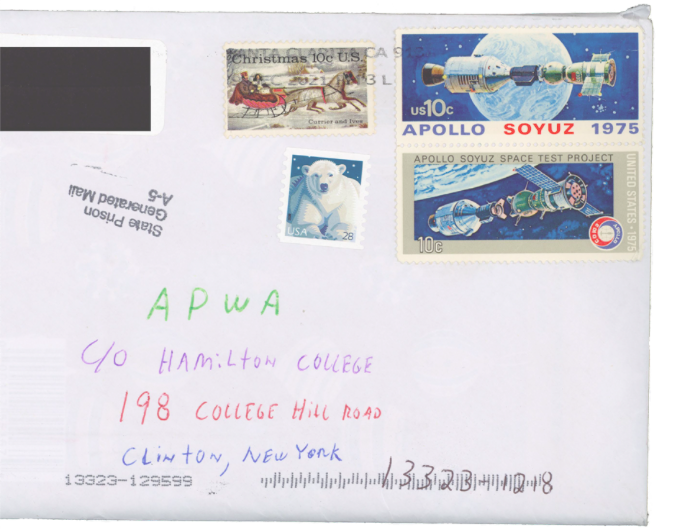 SANTA CLARITA CA 913
DEC 2021 PM 3 L
Christmas 10c U.S.
Currier and Ives
US10c
APOLLO SOYUZ 1975
APOLLO SOYUZ SPACE TEST PROJECT
UNITED STATES · 1975
10c
USA 28
State Prison
Generated Mail
A-5
APWA
C/O HAMILTON COLLEGE
198 COLLEGE HILL ROAD
CLINTON, NEW YORK
13323-1218
13323-129599